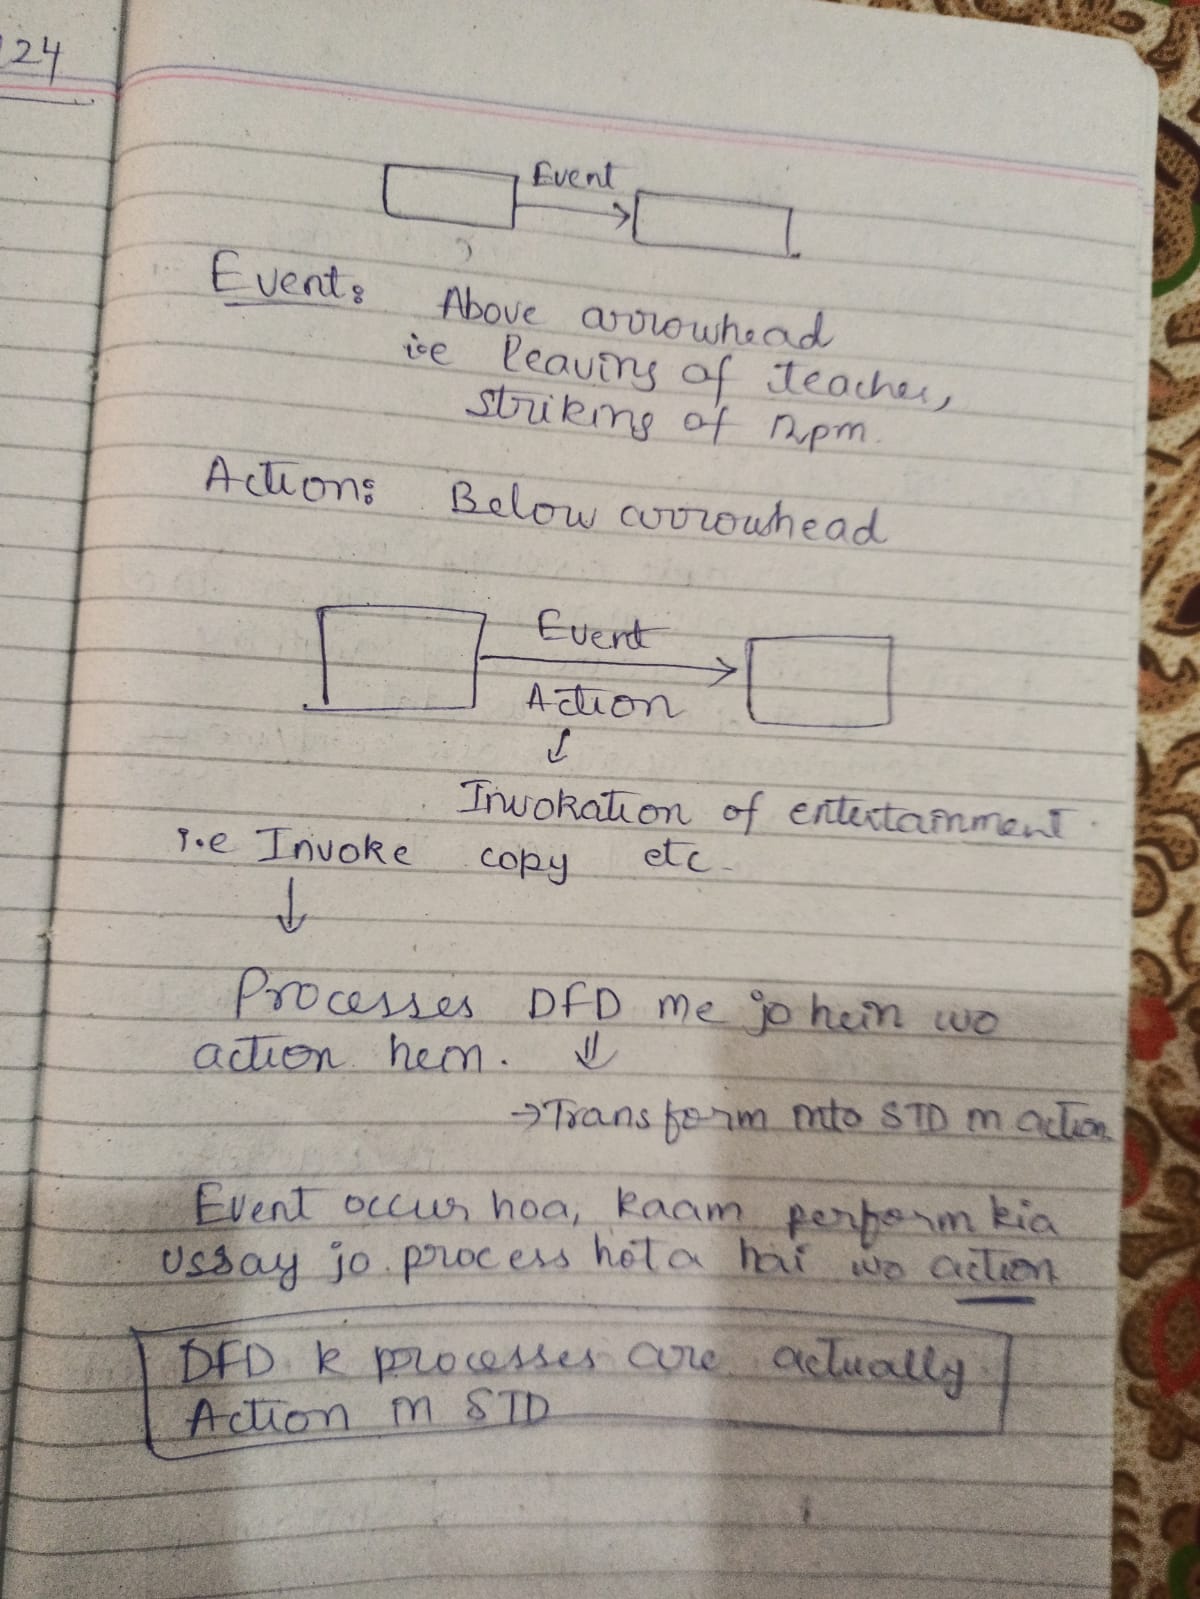 24
Event
Event:
Above arrowhead
i.e leaving of teacher,
striking of 12pm.
Action: Below arrowhead
Event
Action
Invokation of entertainment
i.e Invoke copy etc.
Processes DFD me jo hein wo
action hein.
→Transform into STD in action
Event occur hoa, kaam perform kia
ussay jo process hota hai wo action
DFD k processes are actually
Action in STD